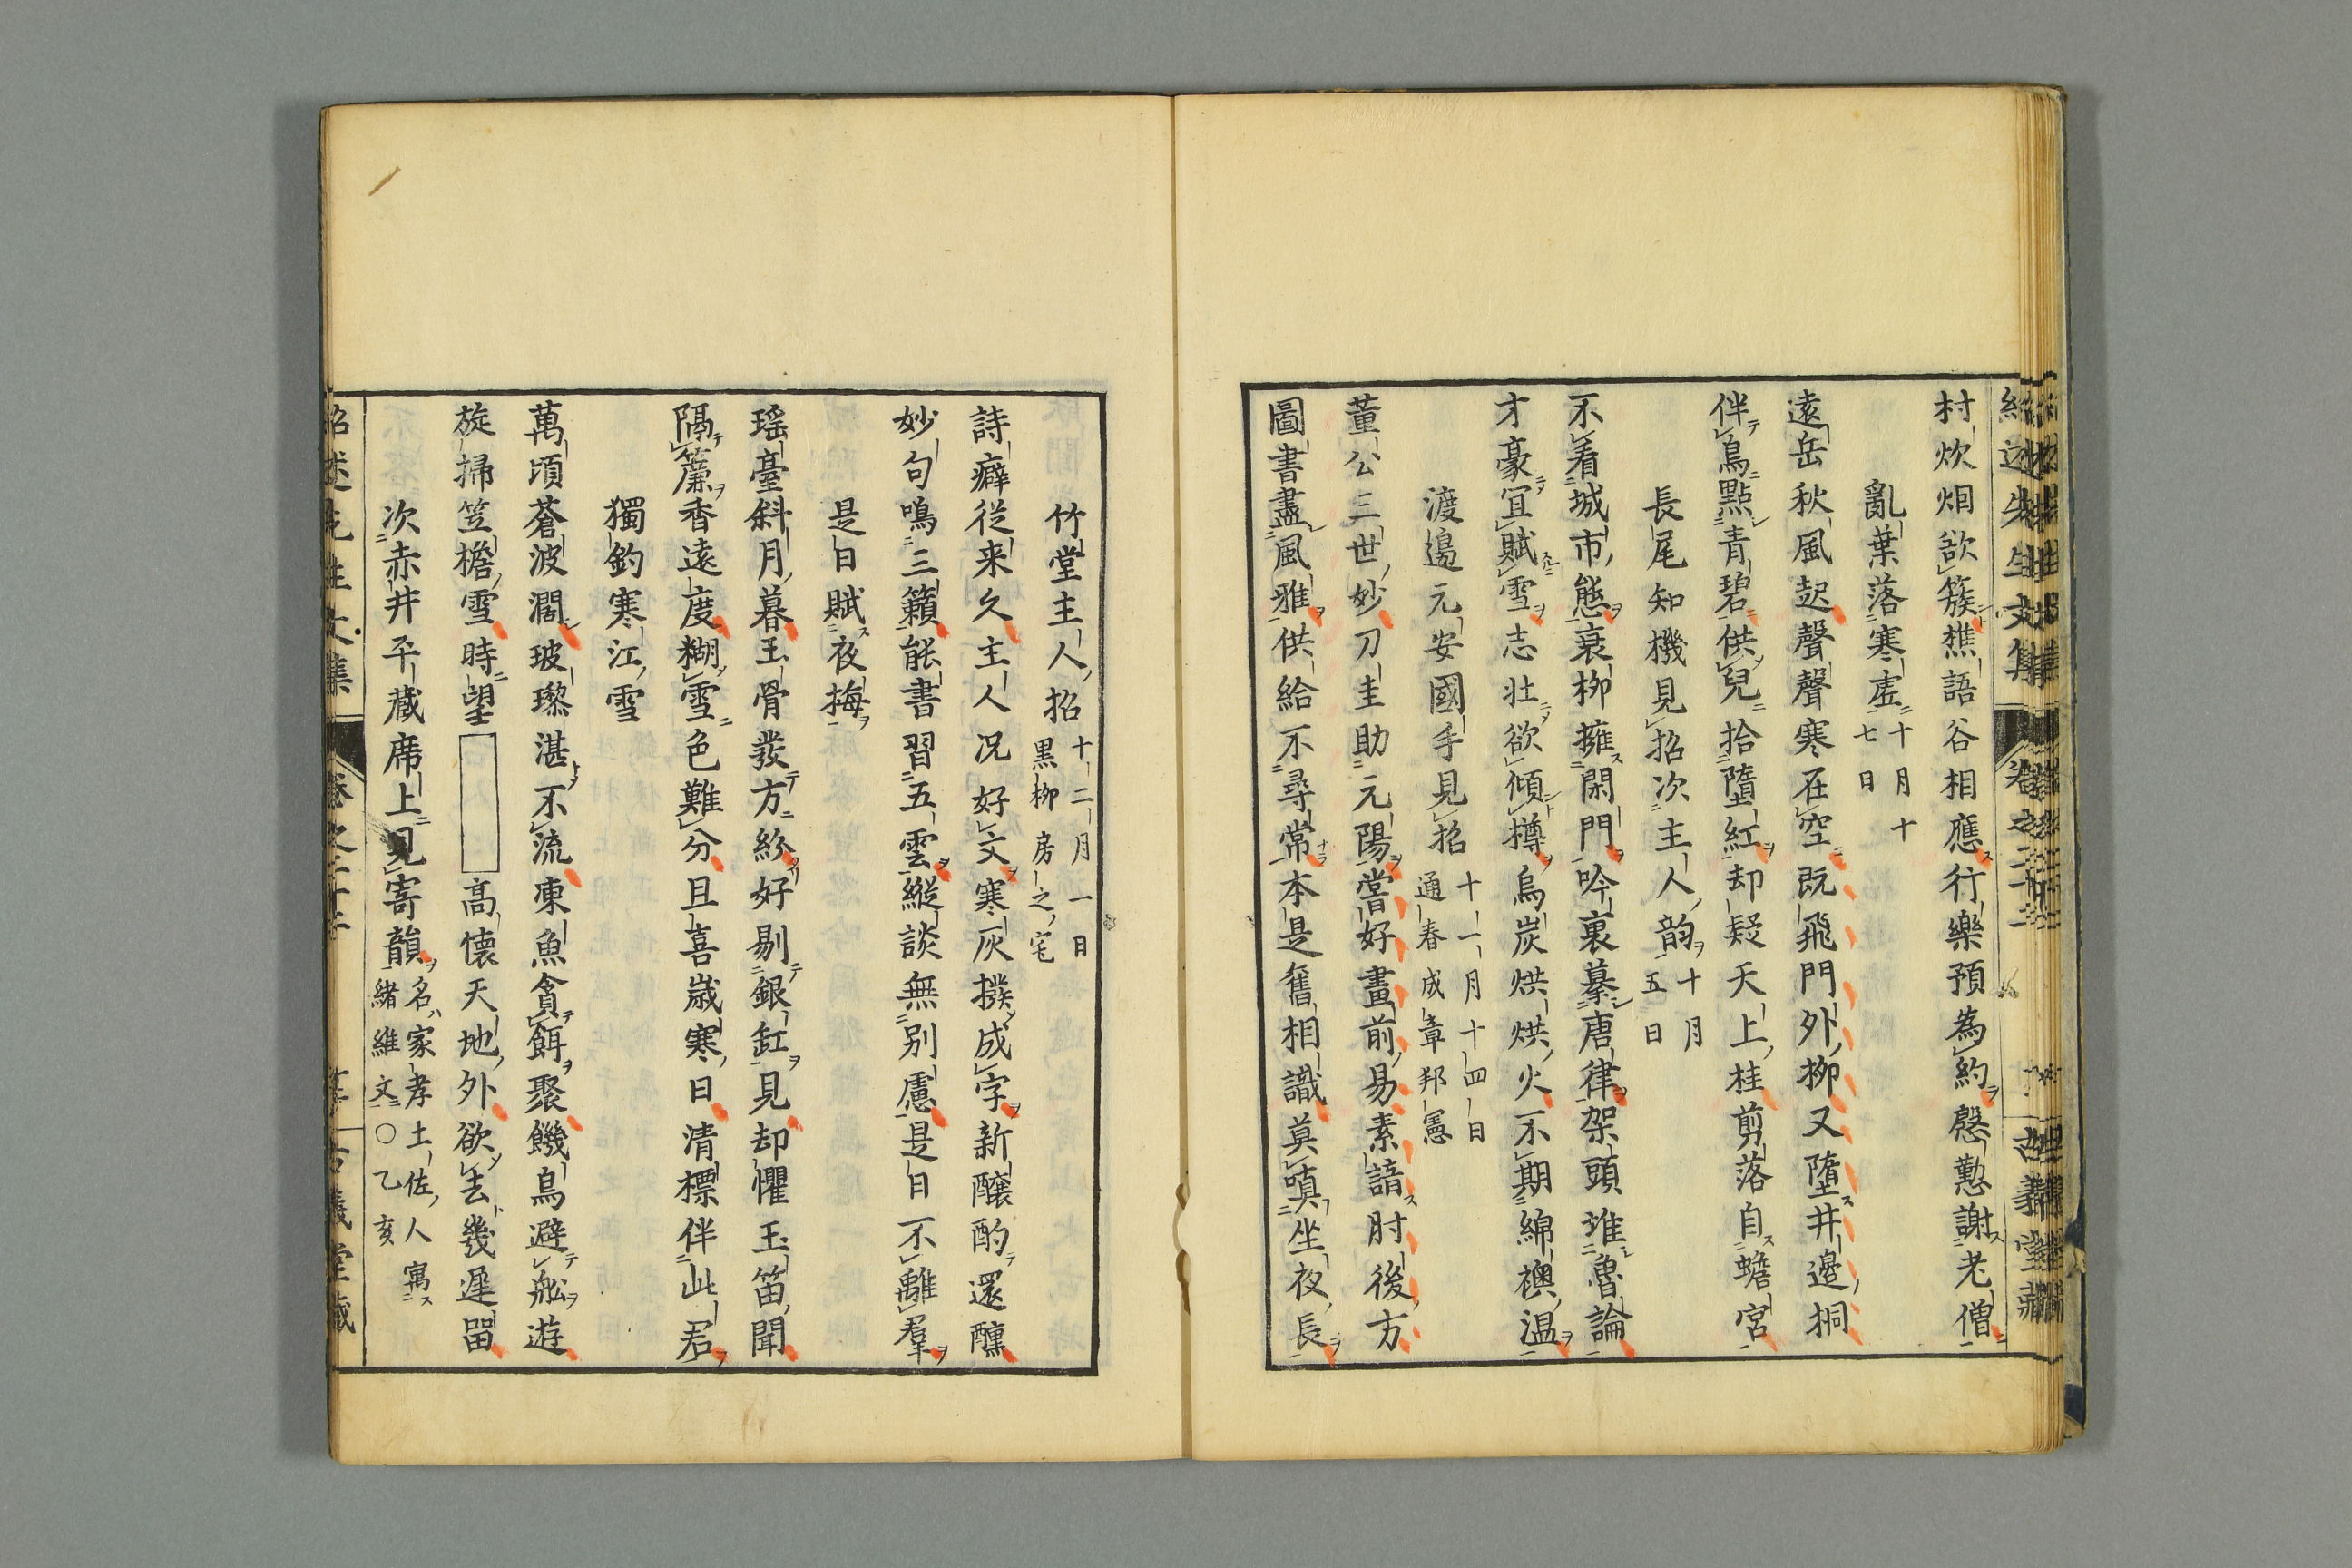 村炊烟欲簇樵語谷相應行樂預為約慇懃謝老僧
亂葉落寒虚 十月十七日
遠岳秋風起聲聲寒在空既飛門外柳又墮井邉桐
伴鳥點青碧供兒拾墮紅却疑天上桂剪落自蟾宮
長尾知機見招次主人韵 十月五日
不看城市態衰柳擁閑門吟裏摹唐律架頭堆魯論
才豪宜賦雪志壮欲傾樽烏炭烘烘火不期綿襖温
渡邉元安國手見招 十一月十四日通春成章邦憲
董公三世妙刀圭助元陽嘗好畫前易素諳肘後方
圖書盡風雅供給不尋常本是舊相識莫嗔坐夜長
竹堂主人招 十二月一日黒柳房之宅
詩癖従来久主人况好文寒灰撥成字新釀酌還醺
妙句鳴三籟能書習五雲縱談無别慮是日不離羣
是日賦夜梅
瑶臺斜月暮玉骨發方紛好剔銀缸見却懼玉笛聞
隔簾香遠度糊雪色難分且喜歳寒日清標伴此君
獨釣寒江雪
萬頃蒼波濶玻瓈湛不流凍魚貪餌聚饑鳥避舩遊
旋掃笠檐雪時望 高懐天地外欲去幾遲留
次赤井平藏席上見寄韻 名家孝土佐人寓緒維文○乙亥
紹述先生文集 卷之二十二 古義堂藏